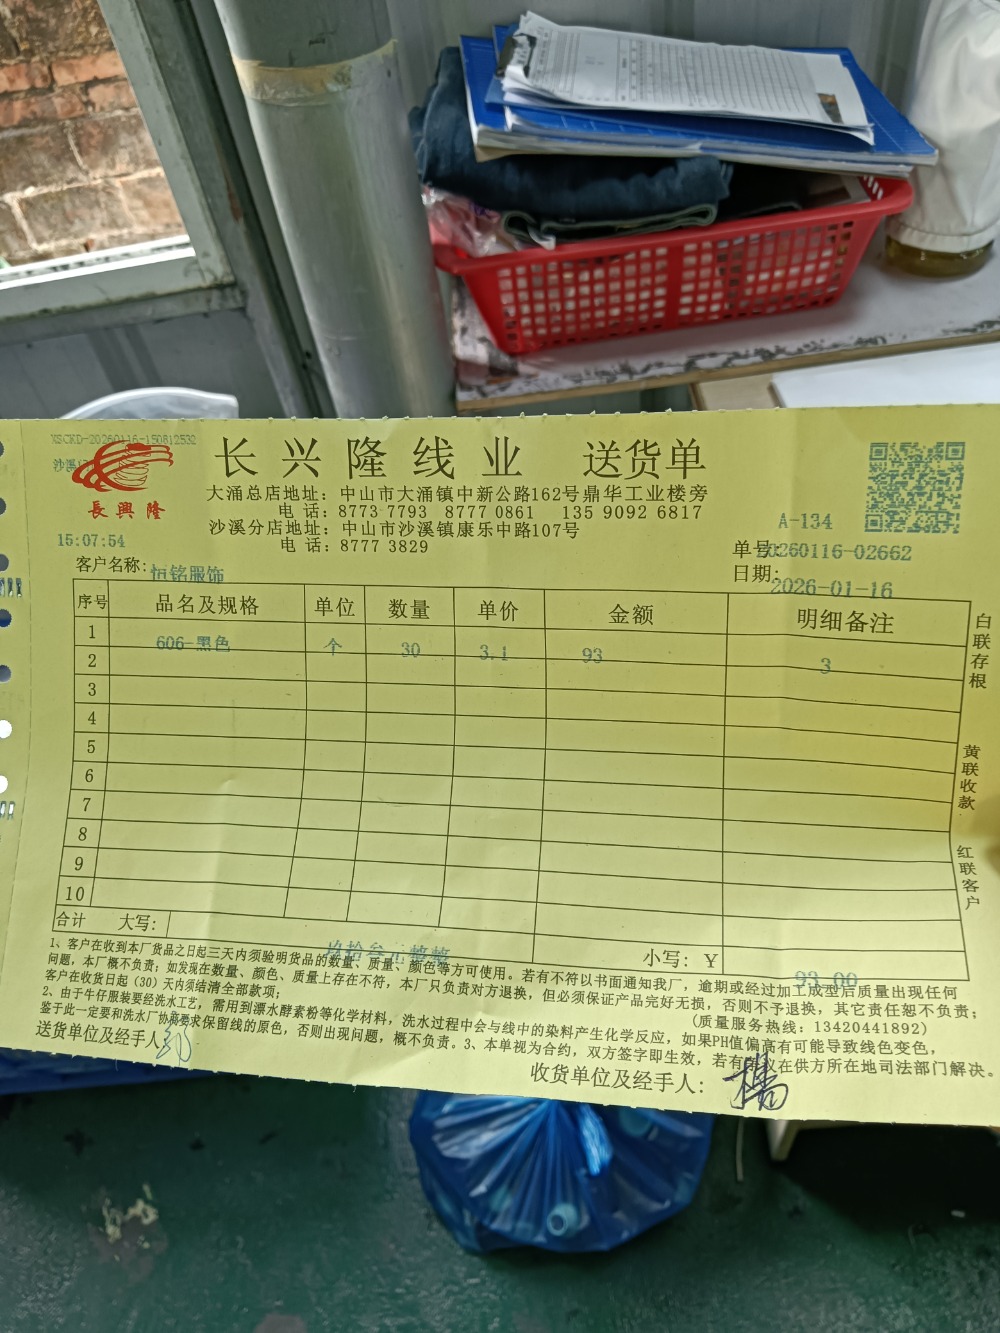 XSCKD-20260116-150812532
沙溪
長興隆
长兴隆线业 送货单
大涌总店地址：中山市大涌镇中新公路162号鼎华工业楼旁
电 话：8773 7793 8777 0861 135 9092 6817
沙溪分店地址：中山市沙溪镇康乐中路107号
电 话：8777 3829
A-134
15:07:54
单号：20260116-02662
客户名称：恒铭服饰
日期：2026-01-16
序号 品名及规格 单位 数量 单价 金额 明细备注
1 606-黑色 个 30 3.1 93 3
2
3
4
5
6
7
8
9
10
合计 大写：玖拾叁元整 小写：Y 93.00
白联存根
黄联收款
红联客户
1、客户在收到本厂货品之日起三天内须验明货品的数量、质量、颜色等方可使用。若有不符以书面通知我厂，逾期或经过加工成型后质量出现任何
问题，本厂概不负责；如发现在数量、颜色、质量上存在不符，本厂只负责对方退换，但必须保证产品完好无损，否则不予退换，其它责任恕不负责；
客户在收货日起（30）天内须结清全部款项；
(质量服务热线：13420441892)
2、由于牛仔服装要经洗水工艺，需用到漂水酵素粉等化学材料，洗水过程中会与线中的染料产生化学反应，如果PH值偏高有可能导致线色变色，
鉴于此一定要和洗水厂协商要求保留线的原色，否则出现问题，概不负责。3、本单视为合约，双方签字即生效，若有争议在供方所在地司法部门解决。
送货单位及经手人：
收货单位及经手人：杨